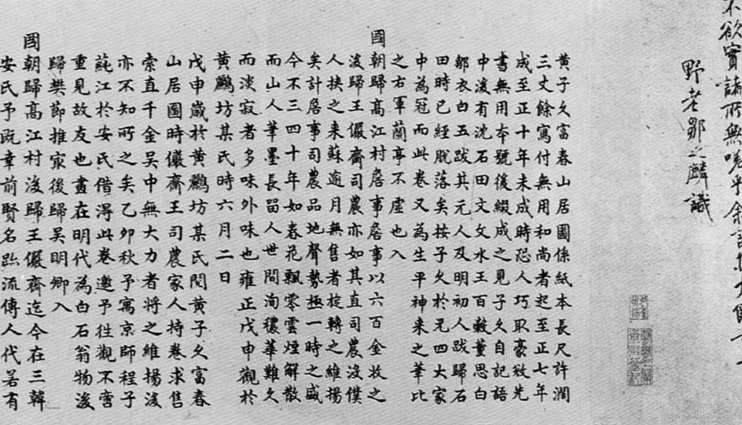 不欲實諸所無嗟乎余言
野老鄒之麟識
黃子久富春山居圖係紙本長尺許潤
三丈餘寫付無用和尚者起至正七年
成至正十年未成時恐人巧取豪敚先
書無用本號後綴成之見子久自記語
中後有沈石田文文水王百穀董思白
鄒衣白五跋其元人及明初人跋歸石
田時已經脫落矣按子久於元四大家
中為冠而此卷又為生平神來之筆比
之右軍蘭亭不虛也入
國朝歸高江村居事居事以六百金收之
後歸王儼齋司農亦如其直司農沒僕
人挾之來蘇逾月無售者旋轉之維揚
矣計居事司農品地聲勢極一時之盛
今不三四十年如春花飄零雲煙解散
而山人筆墨長留人世間洵穠華難久
而淡寂者多味外味也雍正戊申觀於
黃鸝坊某氏時六月二日
戊申歲於黃鸝坊某氏閱黃子久富春
山居圖時儼齋王司農家人持卷求售
索直千金吳中無大力者將之維揚後
亦不知所之矣乙卯秋予寓京師程子
蒓江於安氏借得此卷邀予往觀不啻
重見故友也畫在明代為白石翁物後
歸樊節推家後歸吳明卿入
國朝歸高江村後歸王儼齋迄今在三韓
安氏予既幸前賢名跡流傳人代若有